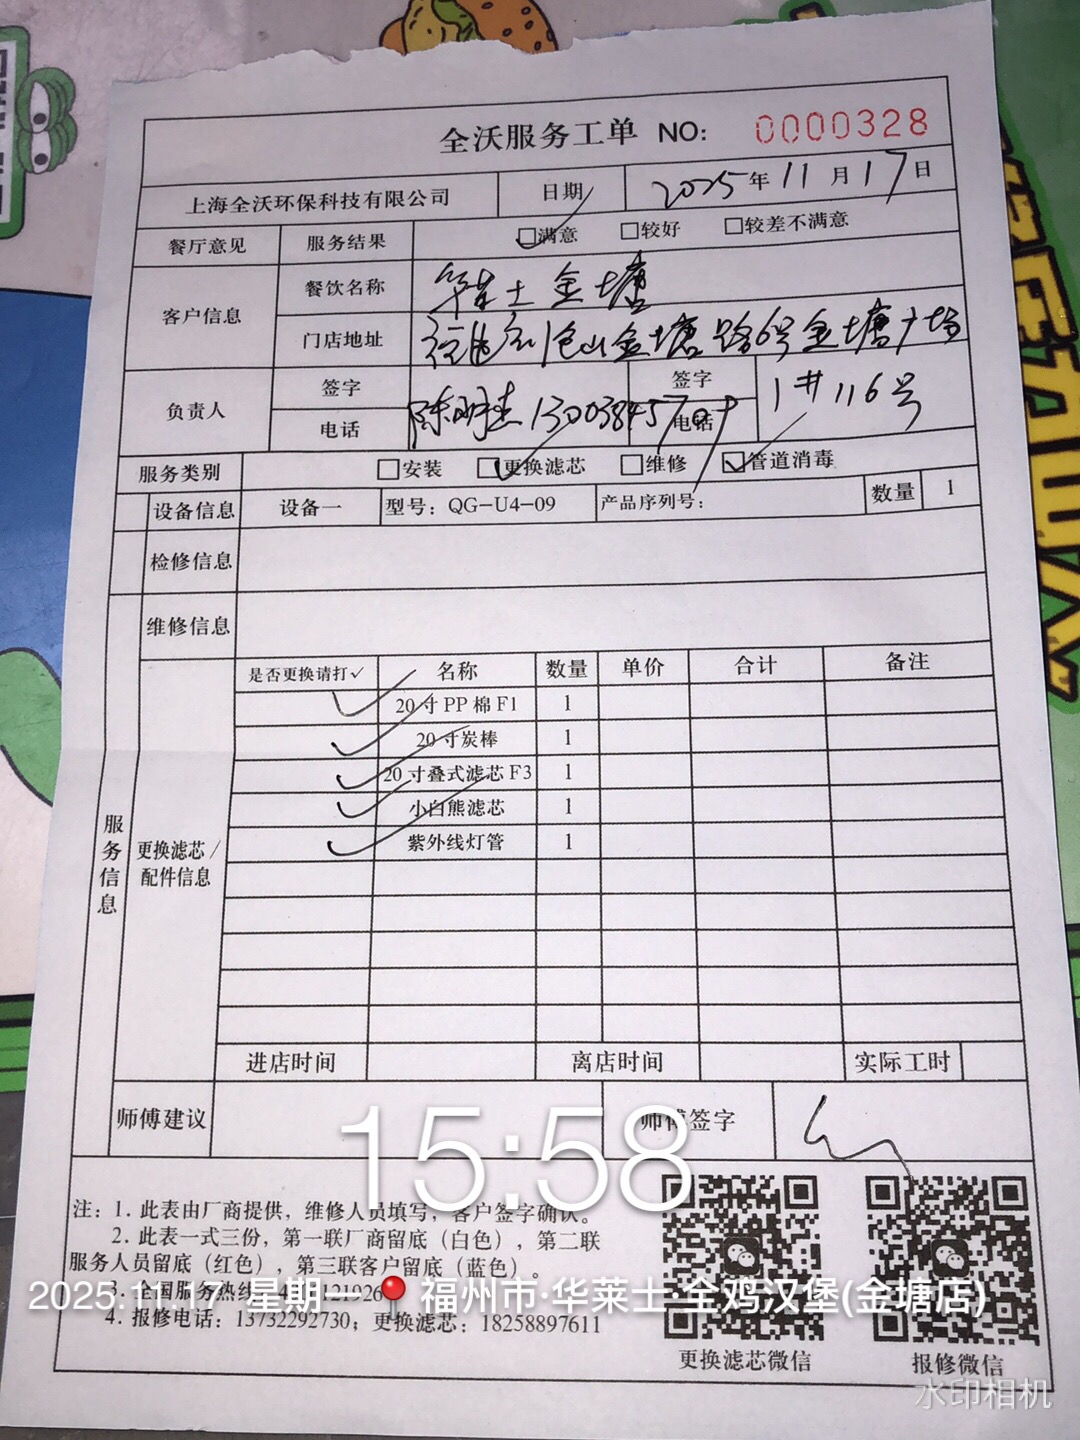 全沃服务工单 NO: 0000328
上海全沃环保科技有限公司 日期 2025年11月17日
餐厅意见 服务结果 □满意 □较好 □较差不满意
客户信息 餐饮名称 华莱士金塘
门店地址 福建省仓山金塘路6号金塘广场
1#116号
负责人 签字 陈明杰 签字
电话 电话
服务类别 □安装 □更换滤芯 □维修 ☑管道消毒
设备信息 设备一 型号：QG-U4-09 产品序列号： 数量 1
检修信息
维修信息
服务信息
更换滤芯/
配件信息
是否更换请打✓ 名称 数量 单价 合计 备注
✓ 20寸PP棉F1 1
✓ 20寸炭棒 1
✓ 20寸叠式滤芯F3 1
✓ 小白熊滤芯 1
✓ 紫外线灯管 1
进店时间 离店时间 实际工时
师傅建议 师傅签字
15:58
注：1. 此表由厂商提供，维修人员填写，客户签字确认。
2. 此表一式三份，第一联厂商留底（白色），第二联
服务人员留底（红色），第三联客户留底（蓝色）。
3. 全国服务热线
2025.11.17 星期一 福州市·华莱士·全鸡汉堡(金塘店)
4. 报修电话：13732292730；更换滤芯：18258897611
更换滤芯微信 报修微信
水印相机